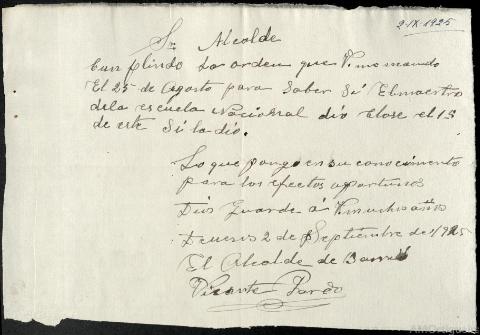 2-IX-1925
Sr Alcalde
Cunplindo la orden que V. me mando
El 25 de Agosto para Saber Si Elmaestro
dela escuela Nacional dio Clase el 15
de este Si la dio.
Lo que pongo en su conocimiento
para los efectos oportunos
Dios Guarde á V. muchos años
2 de Septiembre de 1925
El Alcalde de Barrio
Vicente Pardo